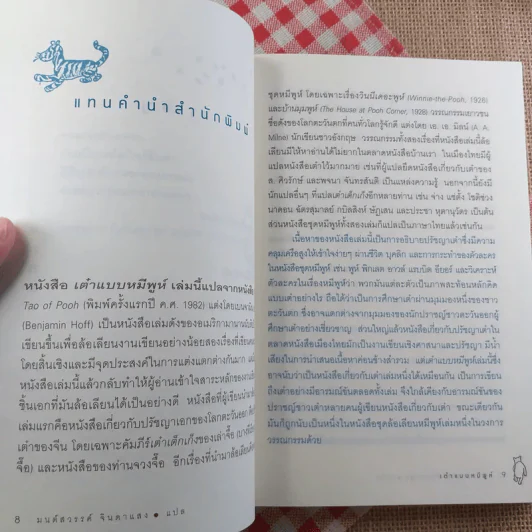 แทนคำนำสำนักพิมพ์
หนังสือ เต๋าแบบหมีพูห์ เล่มนี้แปลจากหนังสือ
Tao of Pooh (พิมพ์ครั้งแรกปี ค.ศ. 1982) แต่งโดยเบนจามิน
(Benjamin Hoff) เป็นหนังสือเล่มดังของอเมริกามานานนับ
เขียนขึ้นเพื่อล้อเลียนงานเขียนอย่างน้อยสองเรื่อง
โดยสิ้นเชิงและมีจุดประสงค์ในการแต่งแตกต่างกันมาก
หนังสือเล่มนี้แล้วกลับทำให้ผู้อ่านเข้าใจสาระหลักของงาน
ชิ้นเอกที่มันล้อเลียนได้เป็นอย่างดี หนังสือที่ผู้เขียน
เล่มแรกคือหนังสือเกี่ยวกับปรัชญาเอกของโลกตะวันออก
เต๋าของจีน โดยเฉพาะคัมภีร์เต๋าเต็กเก็งของเล่าจื๊อ
จื๊อ) และหนังสือของท่านจวงจื๊อ อีกเรื่องที่นำมาล้อเลียน
8 มนต์สวรรค์ จินดาแสง • แปล
ชุดหมีพูห์ โดยเฉพาะเรื่องวินนีเดอะพูห์ (Winnie-the-Pooh, 1926)
และบ้านมุมพูห์ (The House at Pooh Corner, 1928) วรรณกรรมเยาวชน
ชื่อดังของโลกตะวันตกที่คนทั่วโลกรู้จักดี แต่งโดย เอ. เอ. มิลน์ (A. A.
Milne) นักเขียนชาวอังกฤษ วรรณกรรมทั้งสองเรื่องที่หนังสือเล่มนี้ล้อ
เลียนมีให้หาอ่านได้ไม่ยากในตลาดหนังสือบ้านเรา ในเมืองไทยมีผู้
แปลหนังสือเต๋าไว้มากมาย เช่นที่ผู้แปลยึดหนังสือเกี่ยวกับเต๋าของ
ส. ศิวรักษ์ และพจนา จันทรสันติ เป็นแหล่งความรู้ นอกจากนี้ยังมี
นักแปลอื่นๆ ที่แปลเต๋าเต็กเก็งอีกหลายท่าน เช่น จ่าง แซ่ตั้ง โชติช่วง
นาดอน ฉัตรสุมาลย์ กบิลสิงห์ ษัฏเสน และประชา หุตานุวัตร เป็นต้น
ส่วนหนังสือชุดหมีพูห์ทั้งสองเล่มก็แปลเป็นภาษาไทยแล้วเช่นกัน
เนื้อหาของหนังสือเล่มนี้เป็นการอธิบายปรัชญาเต๋าซึ่งมีความ
คลุมเครือสูงให้เข้าใจง่ายๆ ผ่านชีวิต บุคลิก และการกระทำของตัวละคร
ในหนังสือชุดหมีพูห์ เช่น พูห์ พิกเลต อาวล์ แรบบิต อียอร์ และวิเคราะห์
ตัวละครในเรื่องหมีพูห์ว่า พวกมันแต่ละตัวเป็นภาพสะท้อนหลักคิด
แบบเต๋าอย่างไร ถือได้ว่าเป็นการศึกษาเต๋าผ่านมุมมองของชาว
ตะวันตก ซึ่งอาจแตกต่างจากมุมมองของนักปราชญ์ชาวตะวันออกผู้
ศึกษาเต๋าอย่างเชี่ยวชาญ ส่วนใหญ่แล้วหนังสือเกี่ยวกับปรัชญาเต๋าใน
ตลาดหนังสือเมืองไทยมักเป็นงานเขียนเชิงศาสนาและปรัชญา มีน้ำ
เสียงในการนำเสนอเนื้อหาค่อนข้างสำรวม แต่เต๋าแบบหมีพูห์เล่มนี้ซึ่ง
อาจนับว่าเป็นหนังสือเกี่ยวกับเต๋าเล่มหนึ่งได้เหมือนกัน เป็นการเขียน
ถึงเต๋าอย่างมีอารมณ์ขันตลอดทั้งเล่ม จึงใกล้เคียงกับอารมณ์ขันของ
ปราชญ์ชาวเต๋าหลายคนผู้เขียนหนังสือเกี่ยวกับเต๋า ขณะเดียวกัน
มันก็ถูกนับเป็นหนึ่งในหนังสือชุดล้อเลียนหมีพูห์เล่มหนึ่งในวงการ
วรรณกรรมด้วย
เต๋าแบบหมีพูห์ 9